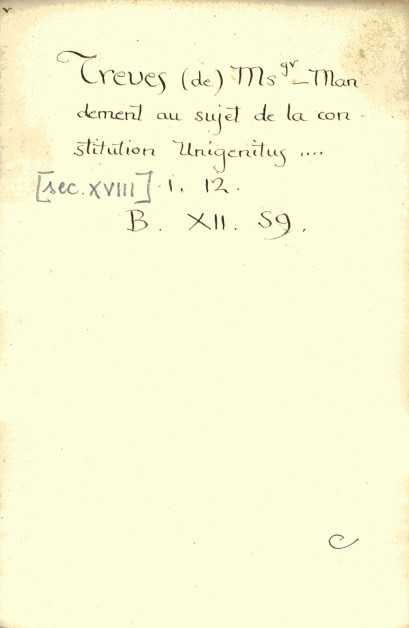 Treves (de) Msgr – Man
dement au sujet de la con-
stitution Unigenitus ....
[sec. XVIII] 1. 12.
B. XII. 59.
C